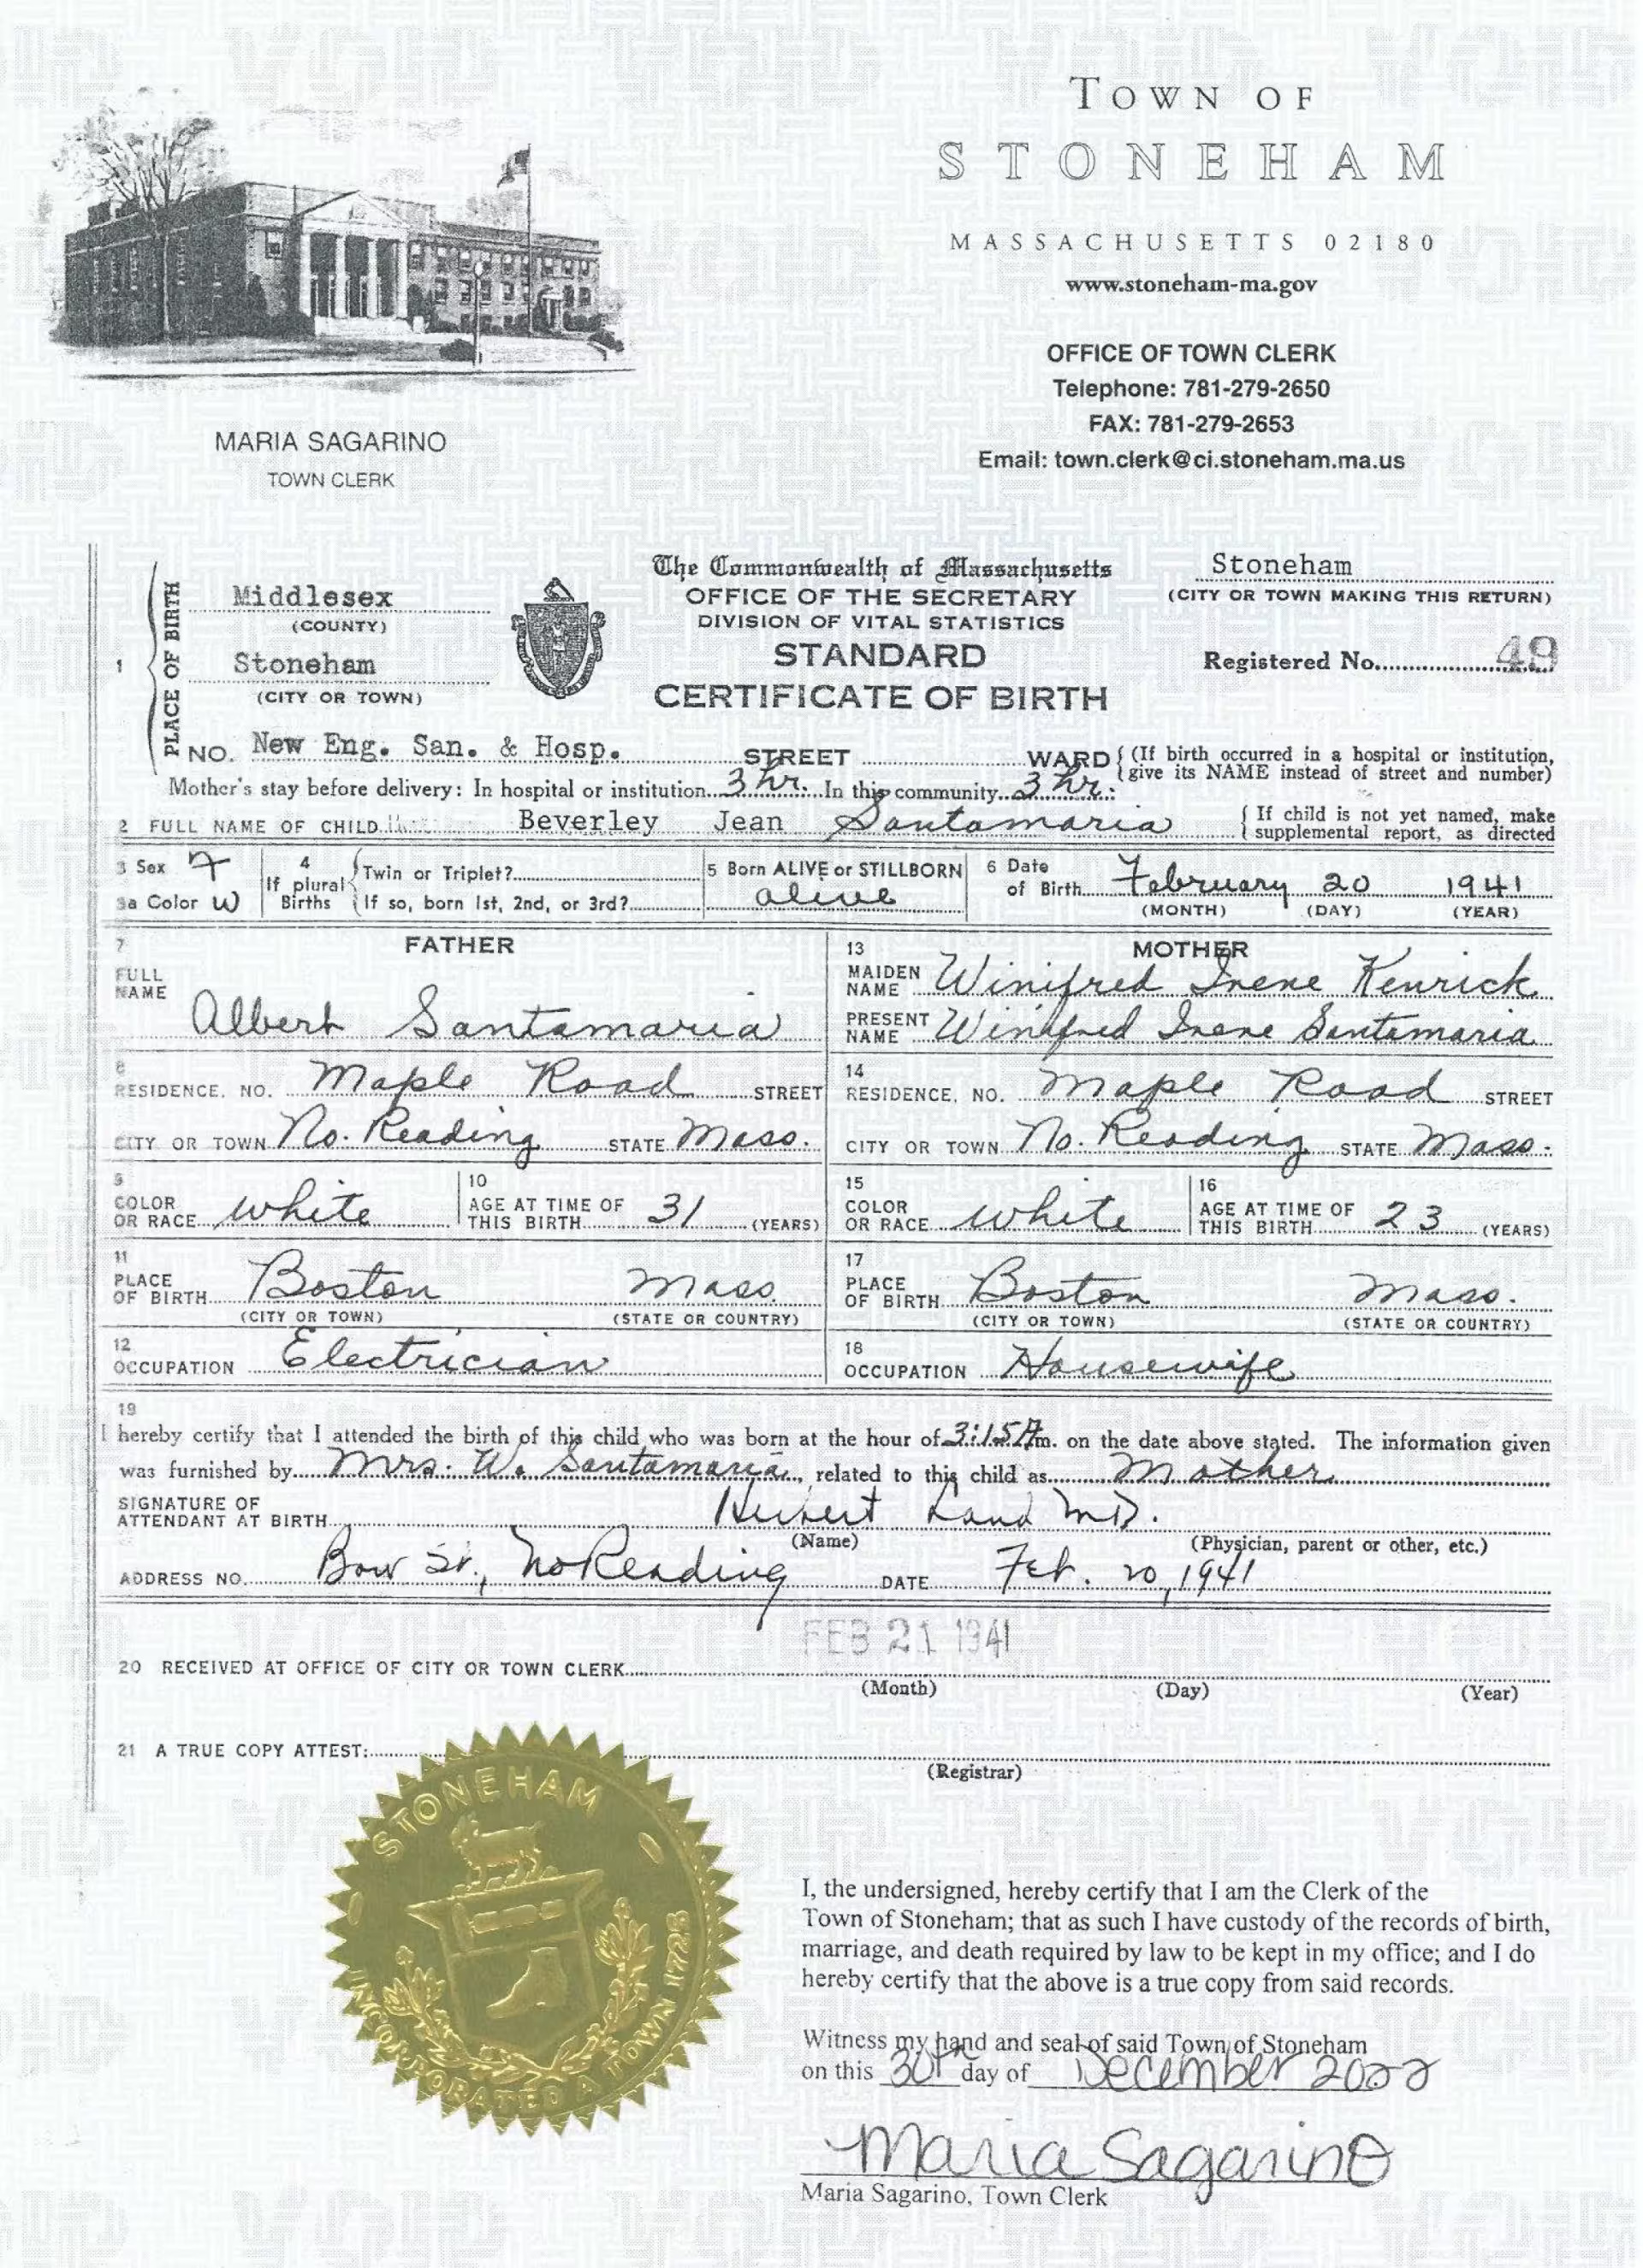 TOWN OF
STONEHAM
MASSACHUSETTS 02180
www.stoneham-ma.gov
OFFICE OF TOWN CLERK
Telephone: 781-279-2650
FAX: 781-279-2653
Email: town.clerk@ci.stoneham.ma.us
MARIA SAGARINO
TOWN CLERK
1 PLACE OF BIRTH
Middlesex
(COUNTY)
Stoneham
(CITY OR TOWN)
The Commonwealth of Massachusetts
OFFICE OF THE SECRETARY
DIVISION OF VITAL STATISTICS
STANDARD
CERTIFICATE OF BIRTH
Stoneham
(CITY OR TOWN MAKING THIS RETURN)
Registered No. 49
NO. New Eng. San. & Hosp. STREET WARD (If birth occurred in a hospital or institution, give its NAME instead of street and number)
Mother's stay before delivery: In hospital or institution 3 hr. In this community 3 hr.
2 FULL NAME OF CHILD Beverley Jean Santamaria If child is not yet named, make supplemental report, as directed
3 Sex F
3a Color W
4 If plural Births
Twin or Triplet?
If so, born 1st, 2nd, or 3rd?
5 Born ALIVE or STILLBORN
alive
6 Date of Birth February 20 1941
(MONTH) (DAY) (YEAR)
7 FATHER
FULL NAME
Albert Santamaria
8
RESIDENCE, NO. Maple Road STREET
CITY OR TOWN No. Reading STATE Mass.
9
COLOR OR RACE white
10
AGE AT TIME OF THIS BIRTH 31 (YEARS)
11
PLACE OF BIRTH Boston Mass.
(CITY OR TOWN) (STATE OR COUNTRY)
12
OCCUPATION Electrician
13 MOTHER
MAIDEN NAME Winifred Irene Kenrick
PRESENT NAME Winifred Irene Santamaria
14
RESIDENCE, NO. Maple Road STREET
CITY OR TOWN No. Reading STATE Mass.
15
COLOR OR RACE white
16
AGE AT TIME OF THIS BIRTH 23 (YEARS)
17
PLACE OF BIRTH Boston Mass.
(CITY OR TOWN) (STATE OR COUNTRY)
18
OCCUPATION Housewife
19
I hereby certify that I attended the birth of this child who was born at the hour of 3:15 A m. on the date above stated. The information given
was furnished by Mrs. W. Santamaria, related to this child as Mother
SIGNATURE OF ATTENDANT AT BIRTH Hubert Land M.D.
(Name) (Physician, parent or other, etc.)
ADDRESS NO. Bow St., No Reading DATE Feb. 20, 1941
FEB 21 1941
20 RECEIVED AT OFFICE OF CITY OR TOWN CLERK
(Month) (Day) (Year)
21 A TRUE COPY ATTEST:
(Registrar)
STONEHAM
INCORPORATED A TOWN 1725
I, the undersigned, hereby certify that I am the Clerk of the
Town of Stoneham; that as such I have custody of the records of birth,
marriage, and death required by law to be kept in my office; and I do
hereby certify that the above is a true copy from said records.
Witness my hand and seal of said Town of Stoneham
on this 30th day of December 2022
Maria Sagarino
Maria Sagarino, Town Clerk